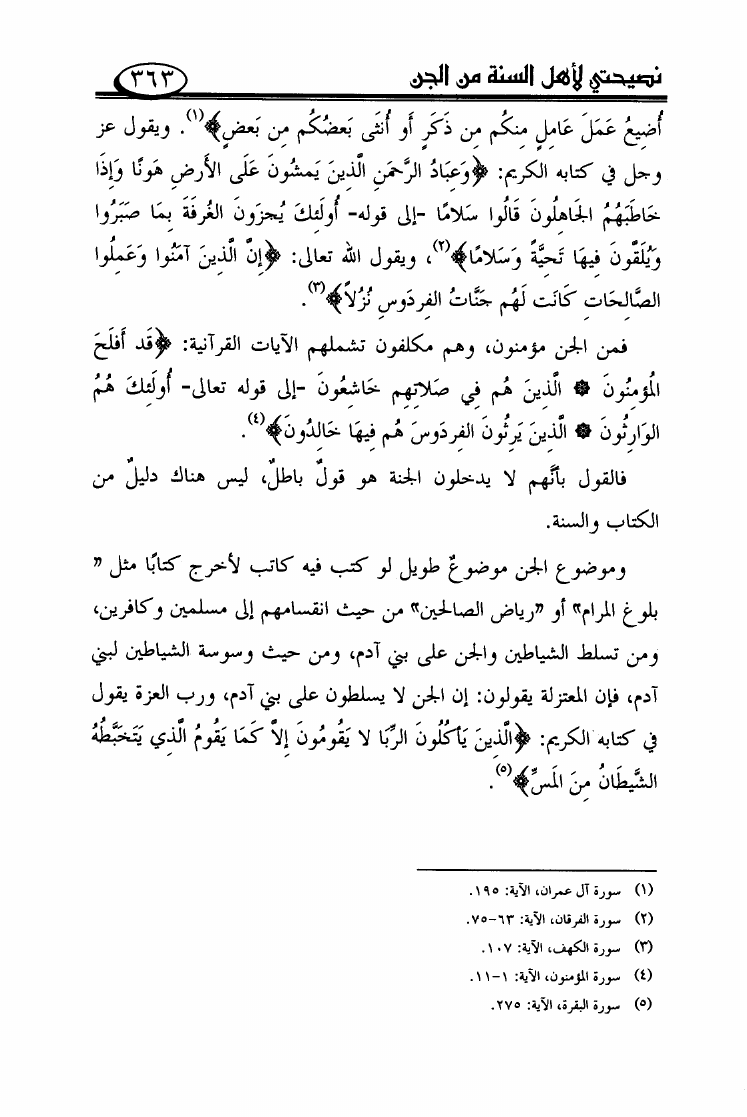 نصيحتي لأهل السنة من الجن
٣٦٣
أُضِيعُ عَمَلَ عَامِلٍ مِنكُم مِن ذَكَرٍ أَو أُنثَى بَعضُكُم مِن بَعضٍ﴾(١). ويقول عز
وجل في كتابه الكريم: ﴿وَعِبَادُ الرَّحمَنِ الَّذِينَ يَمشُونَ عَلَى الأَرضِ هَونًا وَإِذَا
خَاطَبَهُمُ الجَاهِلُونَ قَالُوا سَلامًا -إلى قوله- أُولَئِكَ يُجزَونَ الغُرفَةَ بِمَا صَبَرُوا
وَيُلَقَّونَ فِيهَا تَحِيَّةً وَسَلامًا﴾(٢)، ويقول الله تعالى: ﴿إِنَّ الَّذِينَ آمَنُوا وَعَمِلُوا
الصَّالِحَاتِ كَانَت لَهُم جَنَّاتُ الفِردَوسِ نُزُلاً﴾(٣).
فمن الجن مؤمنون، وهم مكلفون تشملهم الآيات القرآنية: ﴿قَد أَفلَحَ
المُؤمِنُونَ ۞ الَّذِينَ هُم فِي صَلاتِهِم خَاشِعُونَ -إلى قوله تعالى- أُولَئِكَ هُمُ
الوَارِثُونَ ۞ الَّذِينَ يَرِثُونَ الفِردَوسَ هُم فِيهَا خَالِدُونَ﴾(٤).
فالقول بأنَّهم لا يدخلون الجنة هو قولٌ باطلٌ، ليس هناك دليلٌ من
الكتاب والسنة.
وموضوع الجن موضوعٌ طويل لو كتب فيه كاتب لأخرج كتابًا مثل "
بلوغ المرام" أو "رياض الصالحين" من حيث انقسامهم إلى مسلمين وكافرين،
ومن تسلط الشياطين والجن على بني آدم، ومن حيث وسوسة الشياطين لبني
آدم، فإن المعتزلة يقولون: إن الجن لا يسلطون على بني آدم، ورب العزة يقول
في كتابه الكريم: ﴿الَّذِينَ يَأكُلُونَ الرِّبَا لا يَقُومُونَ إِلاَّ كَمَا يَقُومُ الَّذِي يَتَخَبَّطُهُ
الشَّيطَانُ مِنَ المَسِّ﴾(٥).
(١) سورة آل عمران، الآية: ١٩٥.
(٢) سورة الفرقان، الآية: ٦٣-٧٥.
(٣) سورة الكهف، الآية: ١٠٧.
(٤) سورة المؤمنون، الآية: ١-١١.
(٥) سورة البقرة، الآية: ٢٧٥.